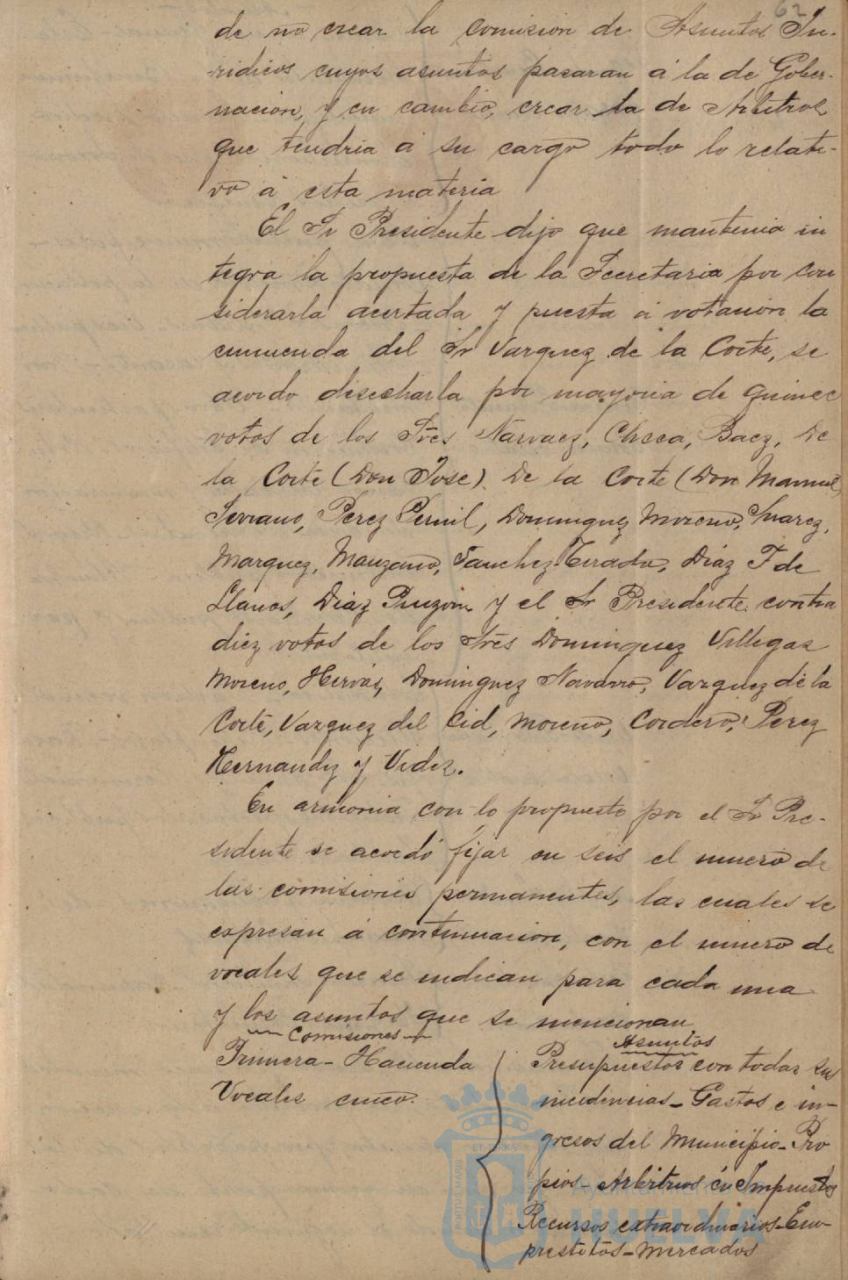 62
de no crear la comision de Asuntos Ju-
ridicos cuyos asuntos pasaran á la de Gober-
nacion, y en cambio, crear la de Arbitros
que tendria á su cargo todo lo relati-
vo á esta materia
El Sr Presidente dijo que mantenia in
tegra la propuesta de la Secretaria por con
siderarla acertada y puesta á votacion la
enmienda del Sr Vazquez de la Corte, se
acordo desecharla por mayoria de quince
votos de los Sres Narvaez, Checa, Baez, De
la Corte (Don Jose) De la Corte (Don Manuel)
Serrano, Perez Pernil, Dominguez Moreno, Suarez,
Marquez, Manzano, Sanchez Tirado, Diaz F de
Llanos, Diaz Pinzon y el Sr Presidente contra
diez votos de los Sres Dominguez Villegas
Moreno, Hervás, Dominguez Navarro, Vazquez de la
Corte, Vazquez del Cid, Moreno, Cordero, Perez
Hernandez y Videz.
En armonia con lo propuesto por el Sr Pre-
sidente se acordó fijar en seis el numero de
las comisiones permanentes, las cuales se
expresan á continuacion, con el numero de
vocales que se indican para cada una
y los asuntos que se mencionan
Comisiones
Asuntos
Primera - Hacienda
Vocales cinco.
Presupuestos con todas su
incidencias - Gastos e in-
gresos del Municipio - Pro
pios - Arbitrios é Impuestos
Recursos extraordinarios - Em-
prestitos - Mercados
HUELVA